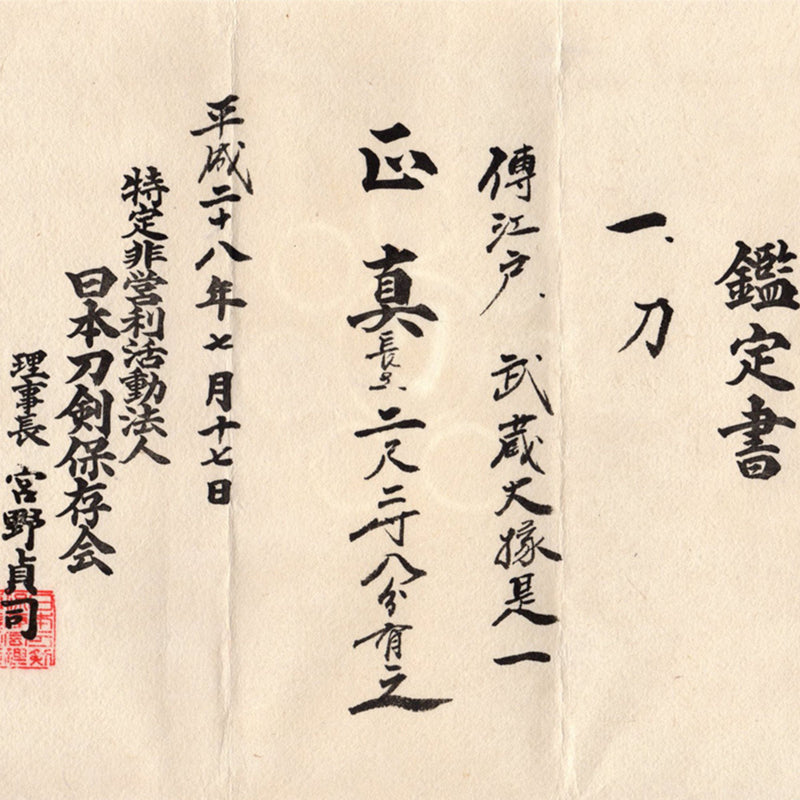 鑑定書
一、刀
傳江戸、武蔵大掾是一
正真
長さ、二尺三寸八分有之
平成二十八年七月十七日
特定非営利活動法人
日本刀剣保存会
理事長 宮野貞司